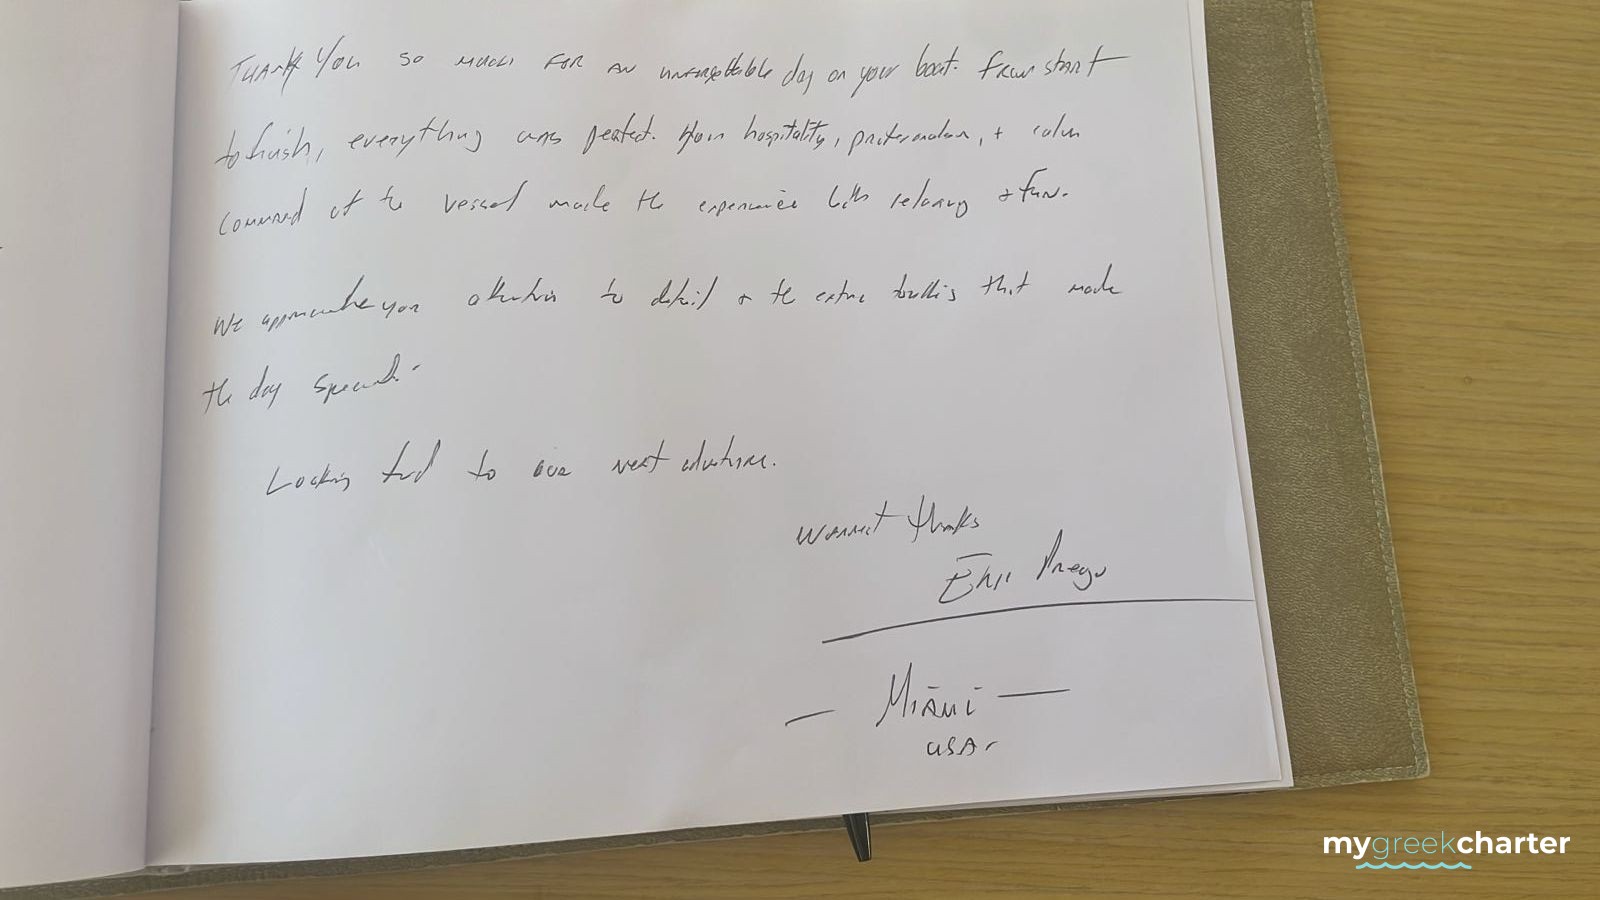 THANK YOU so much FOR AN unforgettable day on your boat. From start
to finish, everything was perfect. Your hospitality, professionalism, + calm
command of the vessel made the experience both relaxing + fun.
We appreciate your attention to detail + the extra touches that made
the day special.
Looking fwd to our next adventure.
Warmest thanks
MIAMI
USA
mygreekcharter